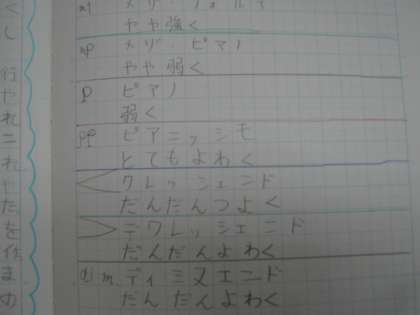 mf メゾ・フォルテ
やや強く
mp メゾ・ピアノ
やや弱く
p ピアノ
弱く
pp ピアニッシモ
とてもよわく
クレッシェンド
だんだんつよく
デクレッシェンド
だんだんよわく
dim ディミヌエンド
だんだんよわく